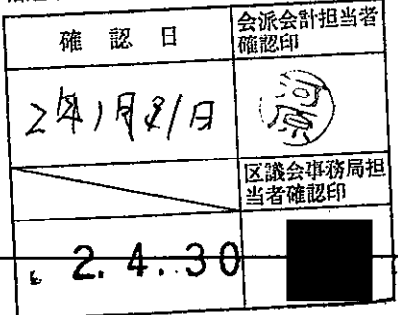 確認日
会派会計担当者
確認印
2年1月31日
河原
区議会事務局担
当者確認印
2.4.30